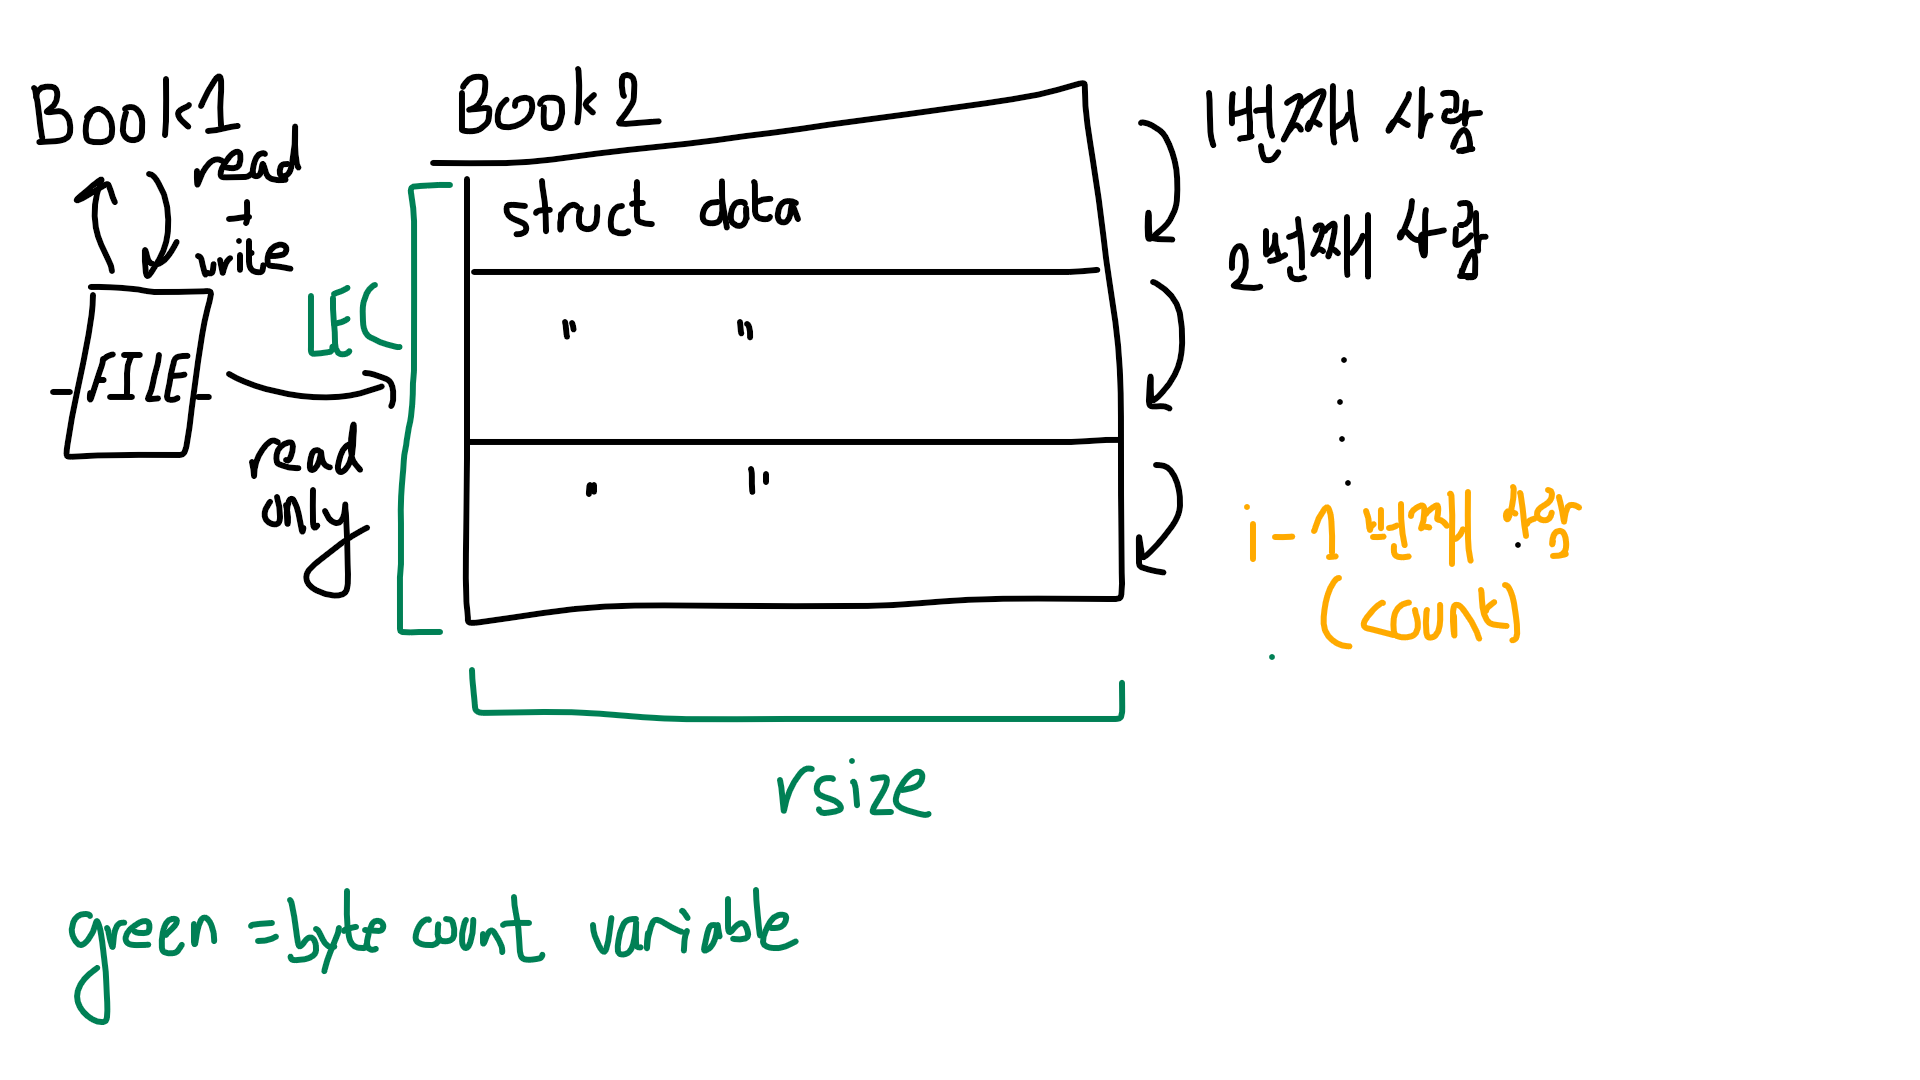 Book1
read
+
write
FILE
read
only
Book 2
struct data
" "
" "
LEC
rsize
1번째 사람
2번째 사람
i-1 번째 사람
(count)
green = byte count variable